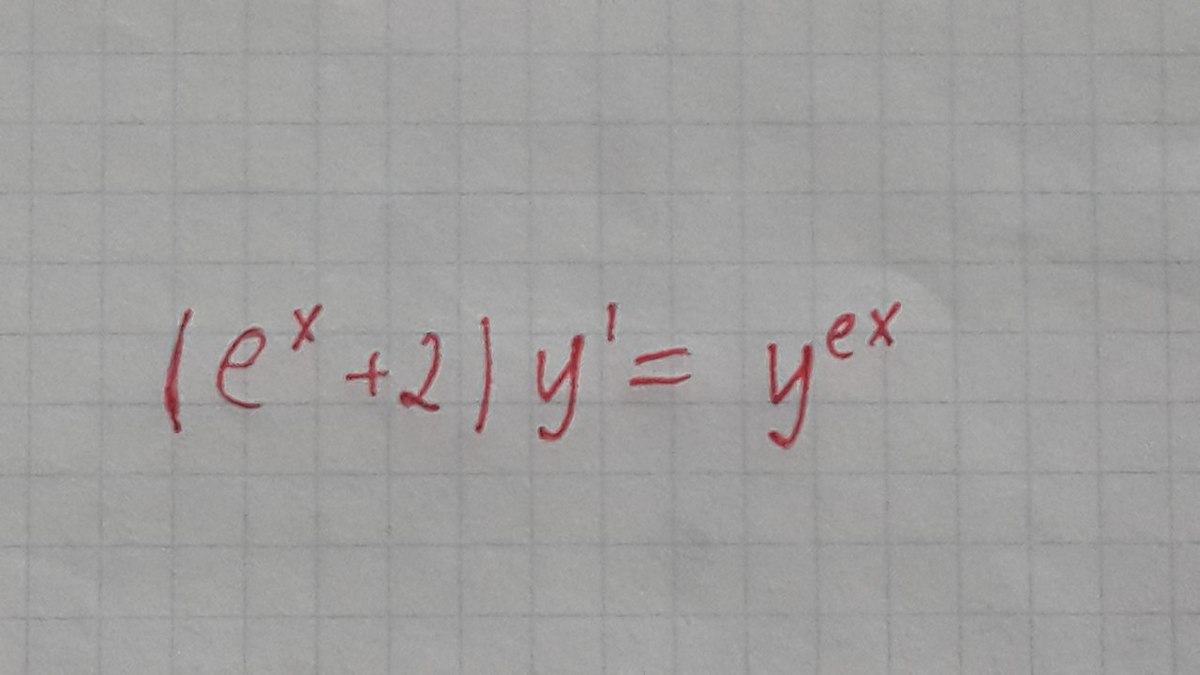 (eˣ+2) y' = yᵉˣ